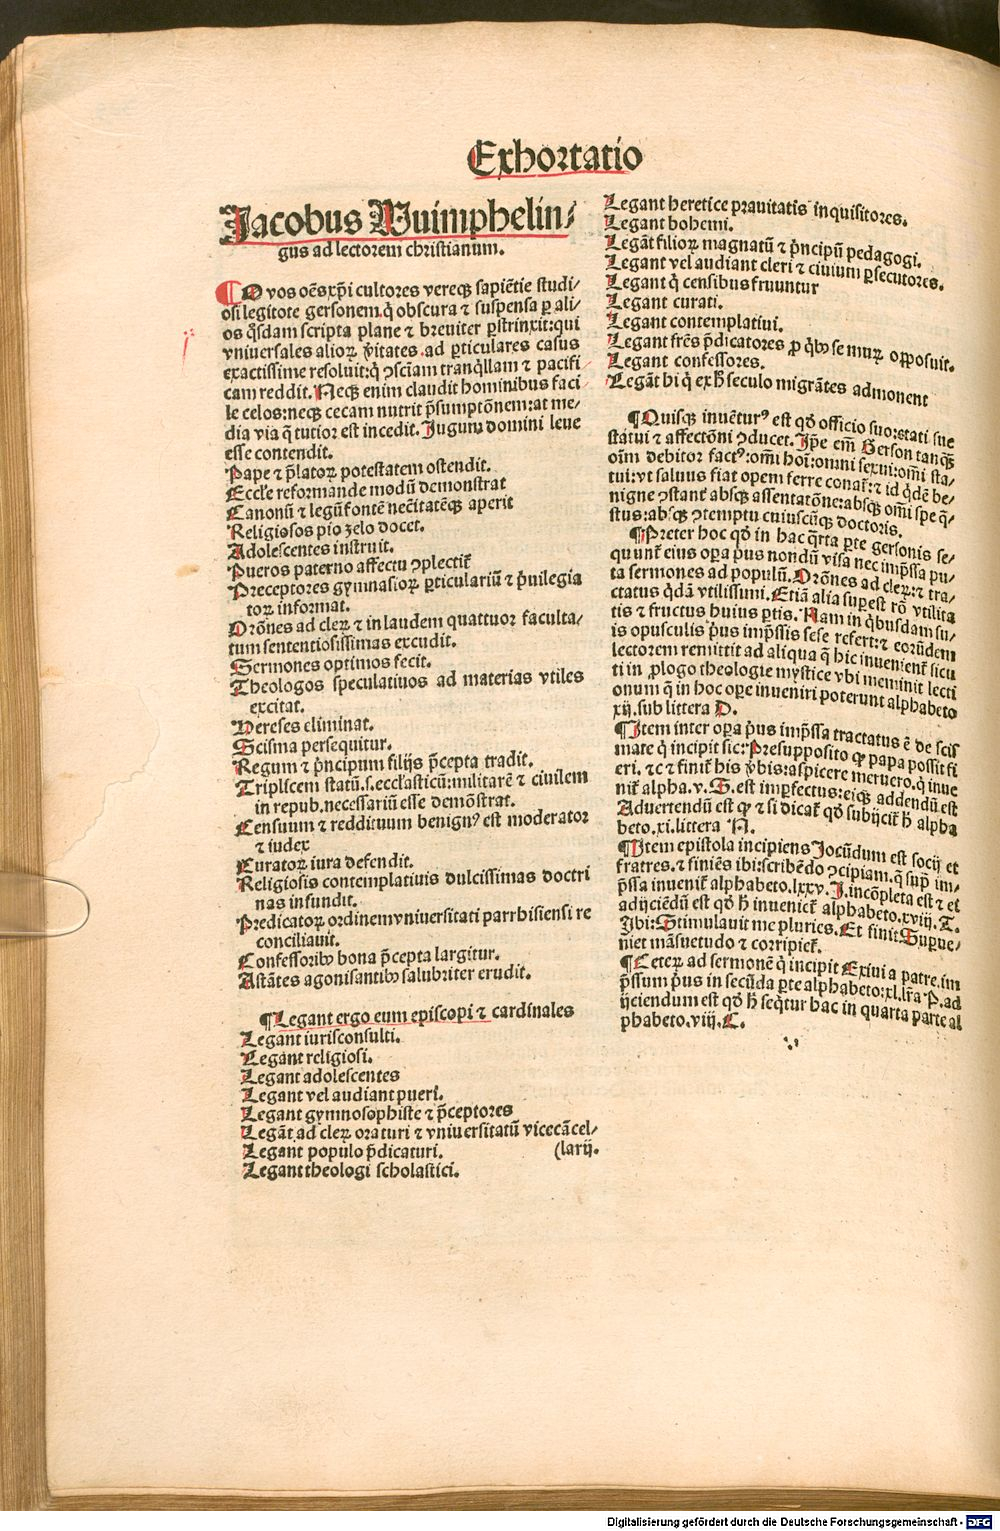 Exhortatio
Jacobus Wuimphelin⸗
gus ad lectorem christianum.
O vos oēs xp̄i cultores vereqꝫ sapiētie studi⸗
osi legitote gersonem.q̇ obscura ⁊ suspensa ꝑ ali⸗
os q̄sdam scripta plane ⁊ breuiter ꝑstrinxit:qui
vniuersales alioꝝ v̄itates.ad ꝑticulares casus
exactissime resoluit:q̇ ↄsciam tranq̇llam ⁊ pacifi
cam reddit.Neqꝫ enim claudit hominibus faci
le celos:neqꝫ cecam nutrit p̄sumptōnem:at me⸗
dia via q̄ tutior est incedit.Jugum domini leue
esse contendit.
Pape ⁊ p̄latoꝝ potestatem ostendit.
Eccl̄e reformande modū demonstrat
Canonū ⁊ legū fontē nec̄itatēqꝫ aperit
Religiosos pio zelo docet.
Adolescentes instruit.
Pueros paterno affectu ↄplectit᷑
Preceptores gymnasioꝝ ꝑticulariū ⁊ ṗuilegia
toꝝ informat.
Orōnes ad cleꝝ ⁊ in laudem quattuor faculta⸗
tum sententiosissimas excudit.
Sermones optimos fecit.
Theologos speculatiuos ad materias vtiles
excitat.
Hereses eliminat.
Scisma persequitur.
Regum ⁊ ṗncipum filijs p̄cepta tradit.
Triplicem statū.s.eccl̄asticū:militarē ⁊ ciuilem
in repub.necessariū esse demōstrat.
Censuum ⁊ reddituum benignꝰ est moderator
⁊ iudex
Curatoꝝ iura defendit.
Religiosis contemplatiuis dulcissimas doctri
nas infundit.
Predicatoꝝ ordinem vniuersitati parrhisiensi re
conciliauit.
Confessoribꝫ bona p̄cepta largitur.
Astātes agonisantibꝫ salubriter erudit.
¶Legant ergo eum episcopi ⁊ cardinales
Legant iurisconsulti.
Legant religiosi.
Legant adolescentes
Legant vel audiant pueri.
Legant gymnosophiste ⁊ p̄ceptores
Legāt ad cleꝝ oraturi ⁊ vniuersitatū vicecācel⸗
Legant populo p̄dicaturi. (larij.
Legant theologi scholastici.
Legant heretice prauitatis inquisitores.
Legant bohemi.
Legāt filioꝝ magnatū ⁊ ṗncipū pedagogi.
Legant vel audiant cleri ⁊ ciuium ꝑsecutores.
Legant q̇ censibus fruuntur
Legant curati.
Legant contemplatiui.
Legant fr̄es p̄dicatores ꝓ q̇bꝫ se muꝝ opposuit.
Legant confessores.
Legāt hi q̇ ex h̄ seculo migrātes admonent
¶Quisqꝫ inuēturꝰ est qd̄ officio suo:etati sue
statui ⁊ affectōni ↄducet.Ip̄e em̄ Gerson tanqꝫ̄
oīm debitor factꝰ:om̄i hoī:omni sexui:om̄i sta⸗
tui:vt saluus fiat opem ferre conat᷑:⁊ id q̇dē be⸗
nigne ↄstant᷑ absqꝫ assentatōne:absqꝫ om̄i spe q̄⸗
stus:absqꝫ ↄtemptu cuiuscūqꝫ doctoris.
¶Preter hoc qd̄ in hac q̄rta ꝑte gersonis se⸗
quunt᷑ eius oꝑa ṗus nondū visa nec imp̄ssa pu⸗
ta sermones ad populū.Orōnes ad cleꝝ:⁊ tra⸗
ctatus q̇dā vtilissimi.Etiā alia suꝑest rō vtilita
tis ⁊ fructus huius ꝑtis.Nam in q̇busdam su⸗
is opusculis ṗus imp̄ssis sese refert:⁊ eorūdem
lectorem remittit ad aliqua q̄ hic inuenient᷑ sicu
ti in ꝓlogo theologie mystice vbi meminit lecti
onum q̄ in hoc oꝑe inueniri poterunt alphabeto
xij.sub littera D.
¶Item inter oꝑa ṗus imp̄ssa tractatus ē de scis
mate q̇ incipit sic:Presupposito ꝙ papa possit fi
eri.⁊c ⁊ finit᷑ his v̄bis:aspicere meruero.q̇ inue
nit᷑ alpha.v.S.est imꝑfectus:eiqꝫ addendū est
Aduertendū est ꝙ ⁊ si dicat᷑ qd̄ subijcit᷑ h̄ alpha
beto.xi.littera N.
¶Item epistola incipiens Jocūdum est socij et
fratres.⁊ finiēs ibi:scribēdo ↄcipiam.q̄ sup̄ im⸗
p̄ssa inuenit᷑ alphabeto.lxxv.J.incōpleta est ⁊ ei
adijciēdū est qd̄ h̄ inueniet᷑ alphabeto.xviij.T.
Ibi:Stimulauit me pluries.Et finit Supue⸗
niet māsuetudo ⁊ corripiet᷑.
¶Ceteꝝ ad sermonē q̇ incipit Exiui a patre.im
p̄ssum ṗus in secūda ꝑte alphabeto:xl.lr̄a P.ad
ijciendum est qd̄ h̄ seq̇tur hac in quarta parte al
phabeto.viij.C.
Digitalisierung gefördert durch die Deutsche Forschungsgemeinschaft - DFG